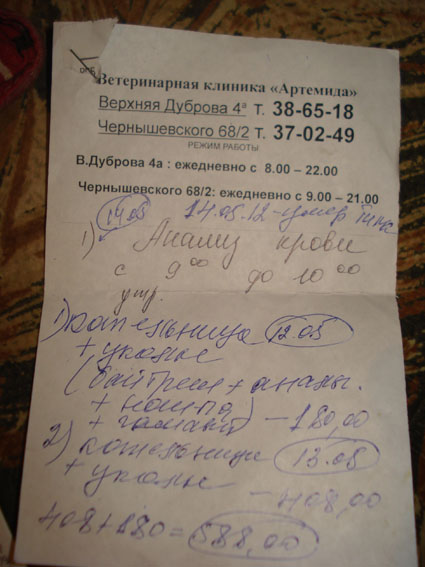 Ветеринарная клиника «Артемида»
Верхняя Дуброва 4а т. 38-65-18
Чернышевского 68/2 т. 37-02-49
РЕЖИМ РАБОТЫ
В.Дуброва 4а : ежедневно с 8.00 – 22.00
Чернышевского 68/2: ежедневно с 9.00 - 21.00
14.05 14.05.12 - умер
1) Анализ крови
с 9 00 до 10 00
утр.
1) капельница 12.05
+ уколы
(байтрил +
+ ношпа)
+ гамавит - 180,00
2) капельницы 13.05
+ уколы
- 408,00
408+180=588,00